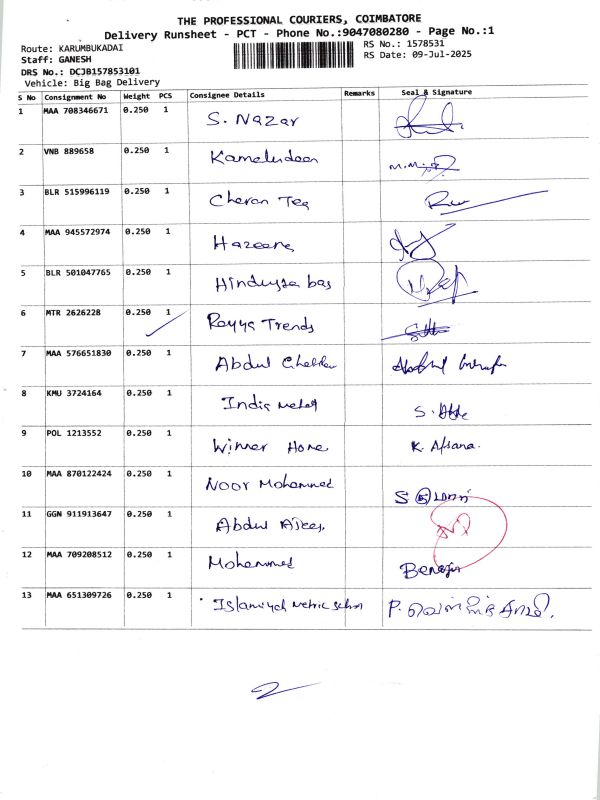 THE PROFESSIONAL COURIERS, COIMBATORE
Delivery Runsheet - PCT - Phone No.:9047080280 - Page No.:1
Route: KARUMBUKADAI
RS No.: 1578531
Staff: GANESH
RS Date: 09-Jul-2025
DRS No.: DCJB157853101
Vehicle: Big Bag Delivery
S No Consignment No Weight PCS Consignee Details Remarks Seal & Signature
1 MAA 708346671 0.250 1 S. Nazar
2 VNB 889658 0.250 1 Kamaludeen
3 BLR 515996119 0.250 1 Cheran Tea
4 MAA 945572974 0.250 1 Hazeena
5 BLR 501047765 0.250 1
6 MTR 2626228 0.250 1 Rayya Trends
7 MAA 576651830 0.250 1 Abdul
8 KMU 3724164 0.250 1 India
9 POL 1213552 0.250 1 Winner Home K. Afsana.
10 MAA 870122424 0.250 1 Noor Mohammed
11 GGN 911913647 0.250 1 Abdul
12 MAA 709208512 0.250 1 Mohammed
13 MAA 651309726 0.250 1 Islamiyah Metric
2